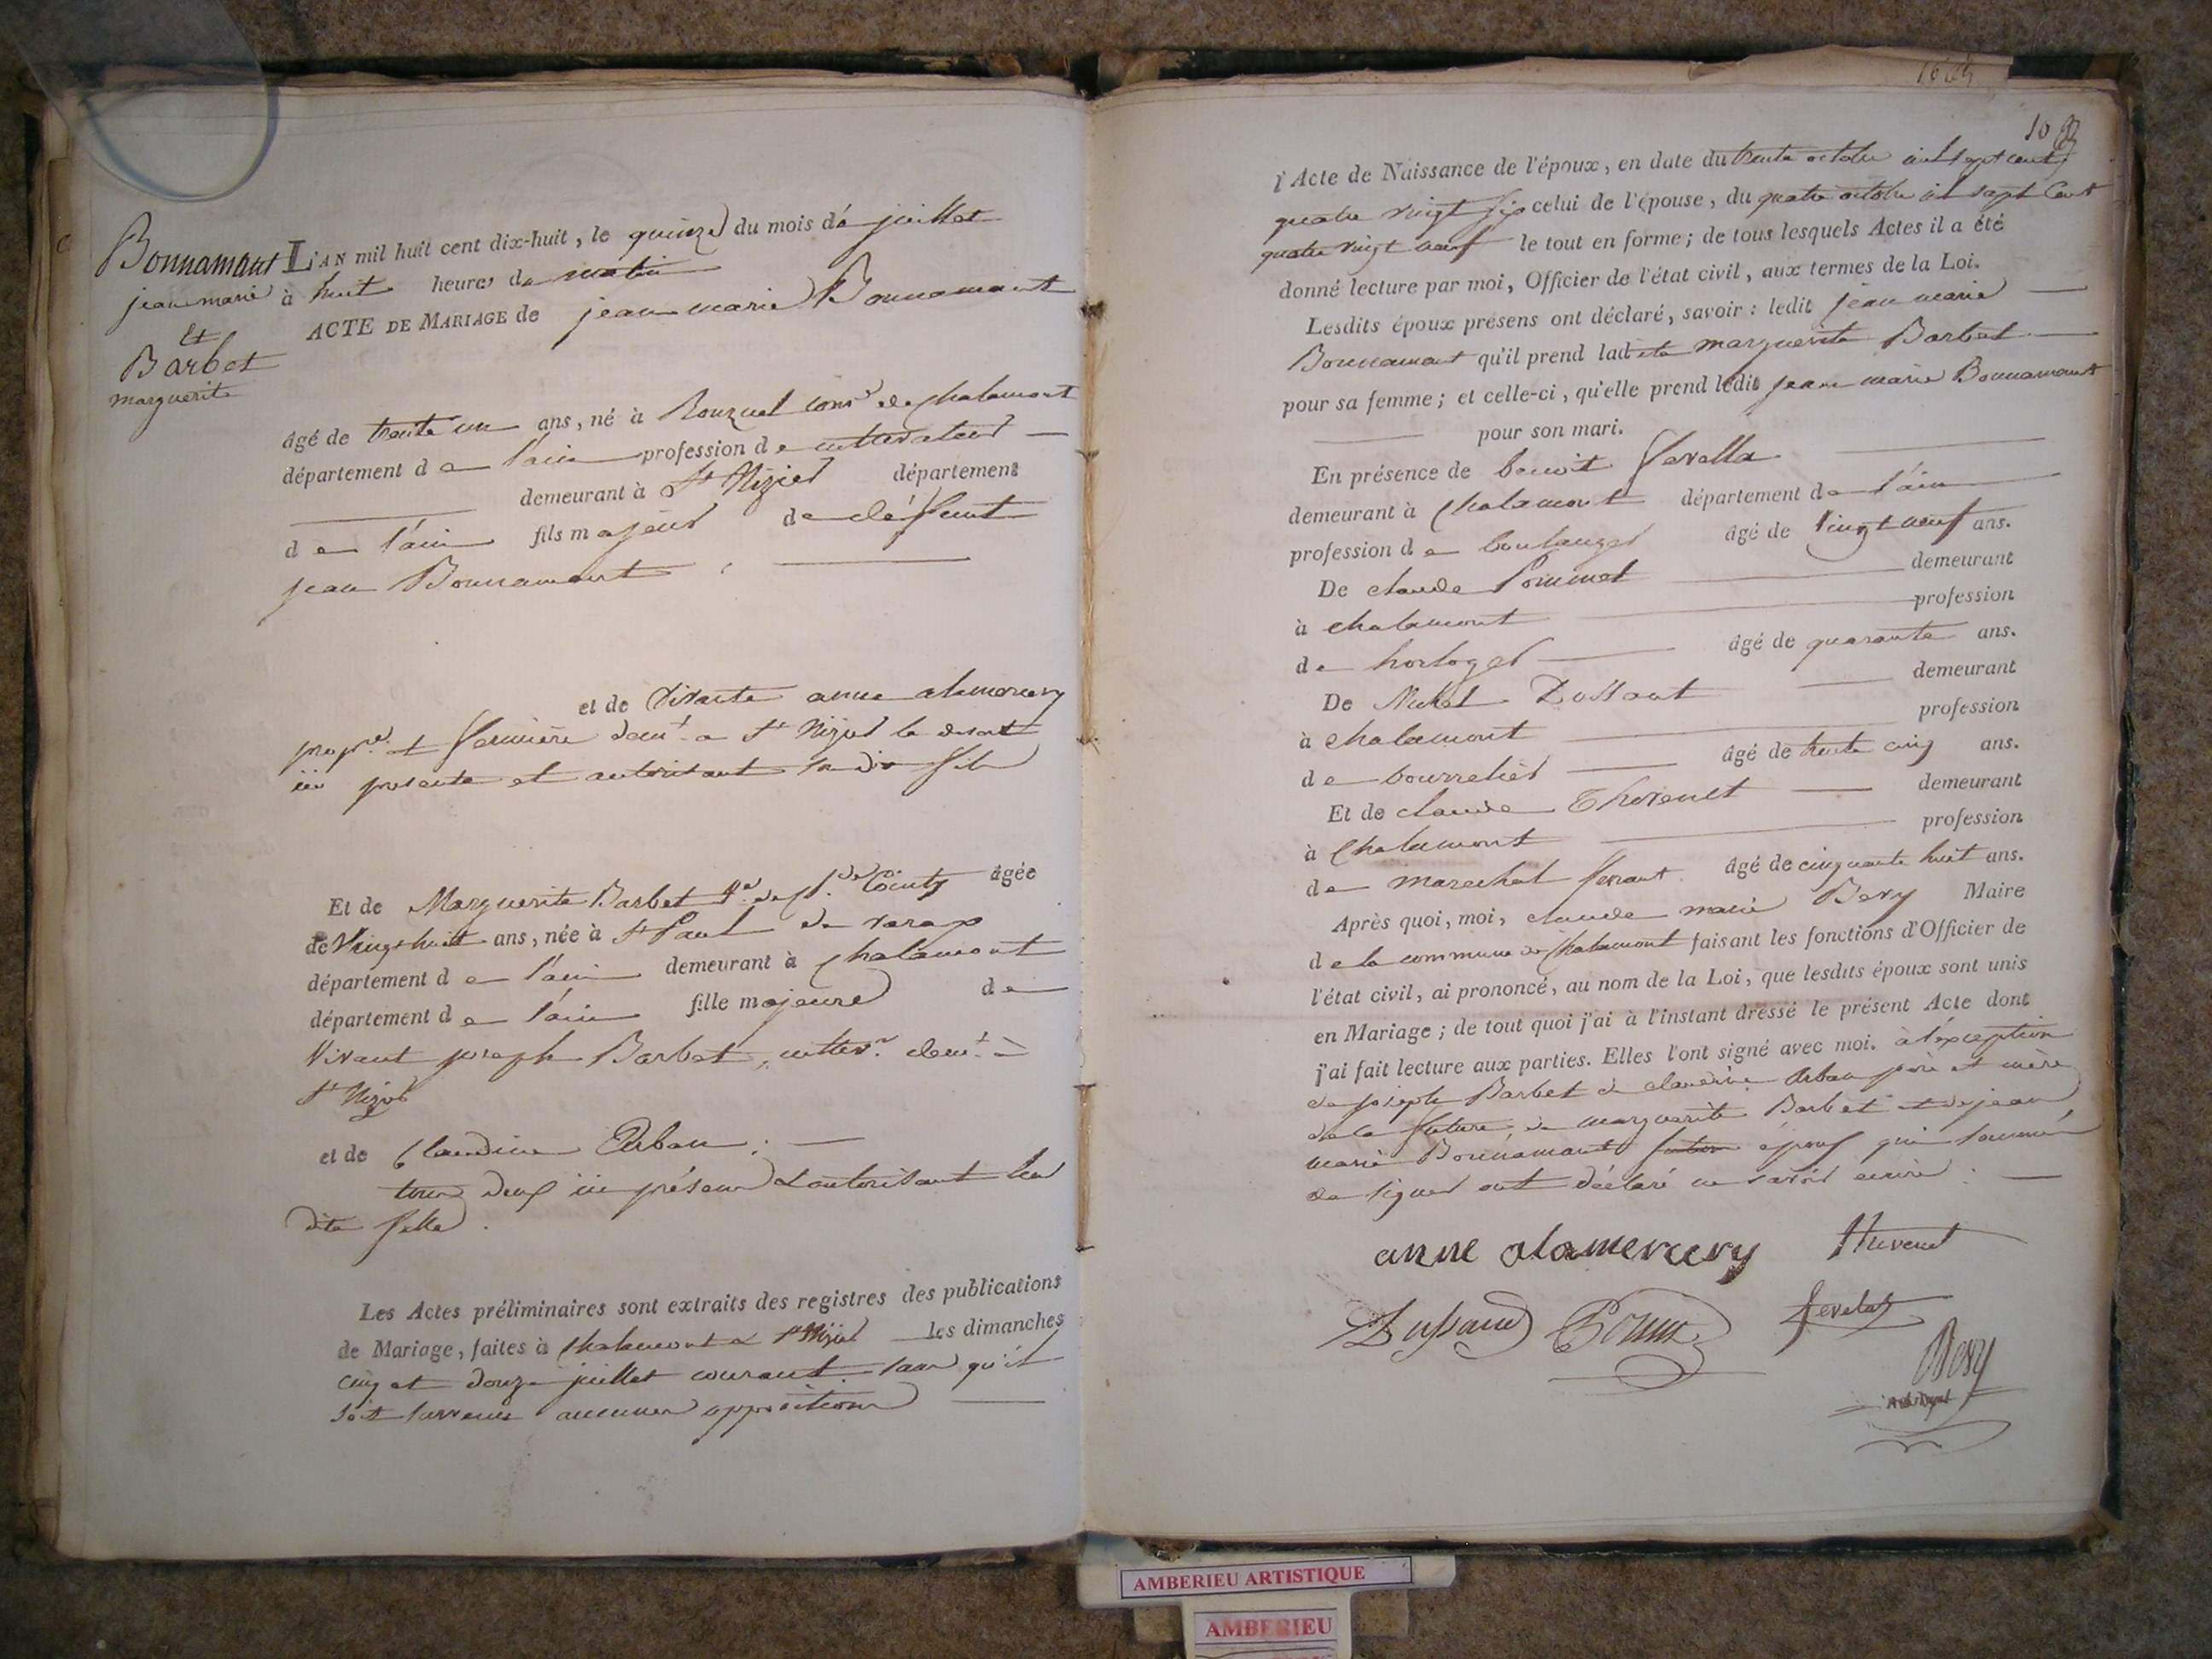 Bonnamant
jean marie
Et
Barbet
marguerite
L'AN mil huit cent dix-huit, le quinze du mois de juillet
à huit heures du matin
ACTE DE MARIAGE de jean marie Bonnamant
âgé de trente un ans, né à Ronzuel com.e de chalamont
département de l'ain profession de cultivateur
demeurant à St Nizier département
de l'ain fils majeur de défunt
jean Bonnamant
et de vivante anne alamercery
propre et fermière demt a St Nizier le desert
ici présente et autorisant son dit fils
Et de Marguerite Barbet âgée
de Vingt huit ans, née à St Paul de varax
département de l'ain demeurant à chalamont
département de l'ain fille majeure de
vivant joseph Barbet, cultivr demt à
St Nizier
et de Claudine Urban
tous deux ici présens et autorisant leur
dite fille.
Les Actes préliminaires sont extraits des registres des publications
de Mariage, faites à chalamont & St Nizier les dimanches
cinq et douze juillet courant sans qu'il
soit survenu aucunes oppositions
10
l'Acte de Naissance de l'époux, en date du trente octobre mil sept cent
quatre vingt six celui de l'épouse, du quatre octobre mil sept cent
quatre vingt neuf le tout en forme; de tous lesquels Actes il a été
donné lecture par moi, Officier de l'état civil, aux termes de la Loi.
Lesdits époux présens ont déclaré, savoir: ledit jean marie
Bonnamant qu'il prend ladite marguerite Barbet
pour sa femme; et celle-ci, qu'elle prend ledit jean marie Bonnamant
pour son mari.
En présence de benoit fevella
demeurant à chalamont département de l'ain
profession de boulanger âgé de vingt neuf ans.
De claude Pommet demeurant
à chalamont profession
de horloger âgé de quarante ans.
De Michel Dussaut demeurant
à chalamont profession
de bourrelier âgé de trente cinq ans.
Et de claude Thevenet demeurant
à chalamont profession
de marechal ferrant âgé de cinquante huit ans.
Après quoi, moi, claude marie Bery Maire
de la commune de chalamont faisant les fonctions d'Officier de
l'état civil, ai prononcé, au nom de la Loi, que lesdits époux sont unis
en Mariage; de tout quoi j'ai à l'instant dressé le présent Acte dont
j'ai fait lecture aux parties. Elles l'ont signé avec moi. à l'exception
de joseph Barbet de claudine Urban père et mère
de la future, de marguerite Barbet et de jean
marie Bonnamant époux qui sommés
de signer ont déclaré ne savoir écrire.
anne alamercery Thevenet
Dussaud Pommet fevelas
Bery
AMBERIEU ARTISTIQUE
AMBERIEU